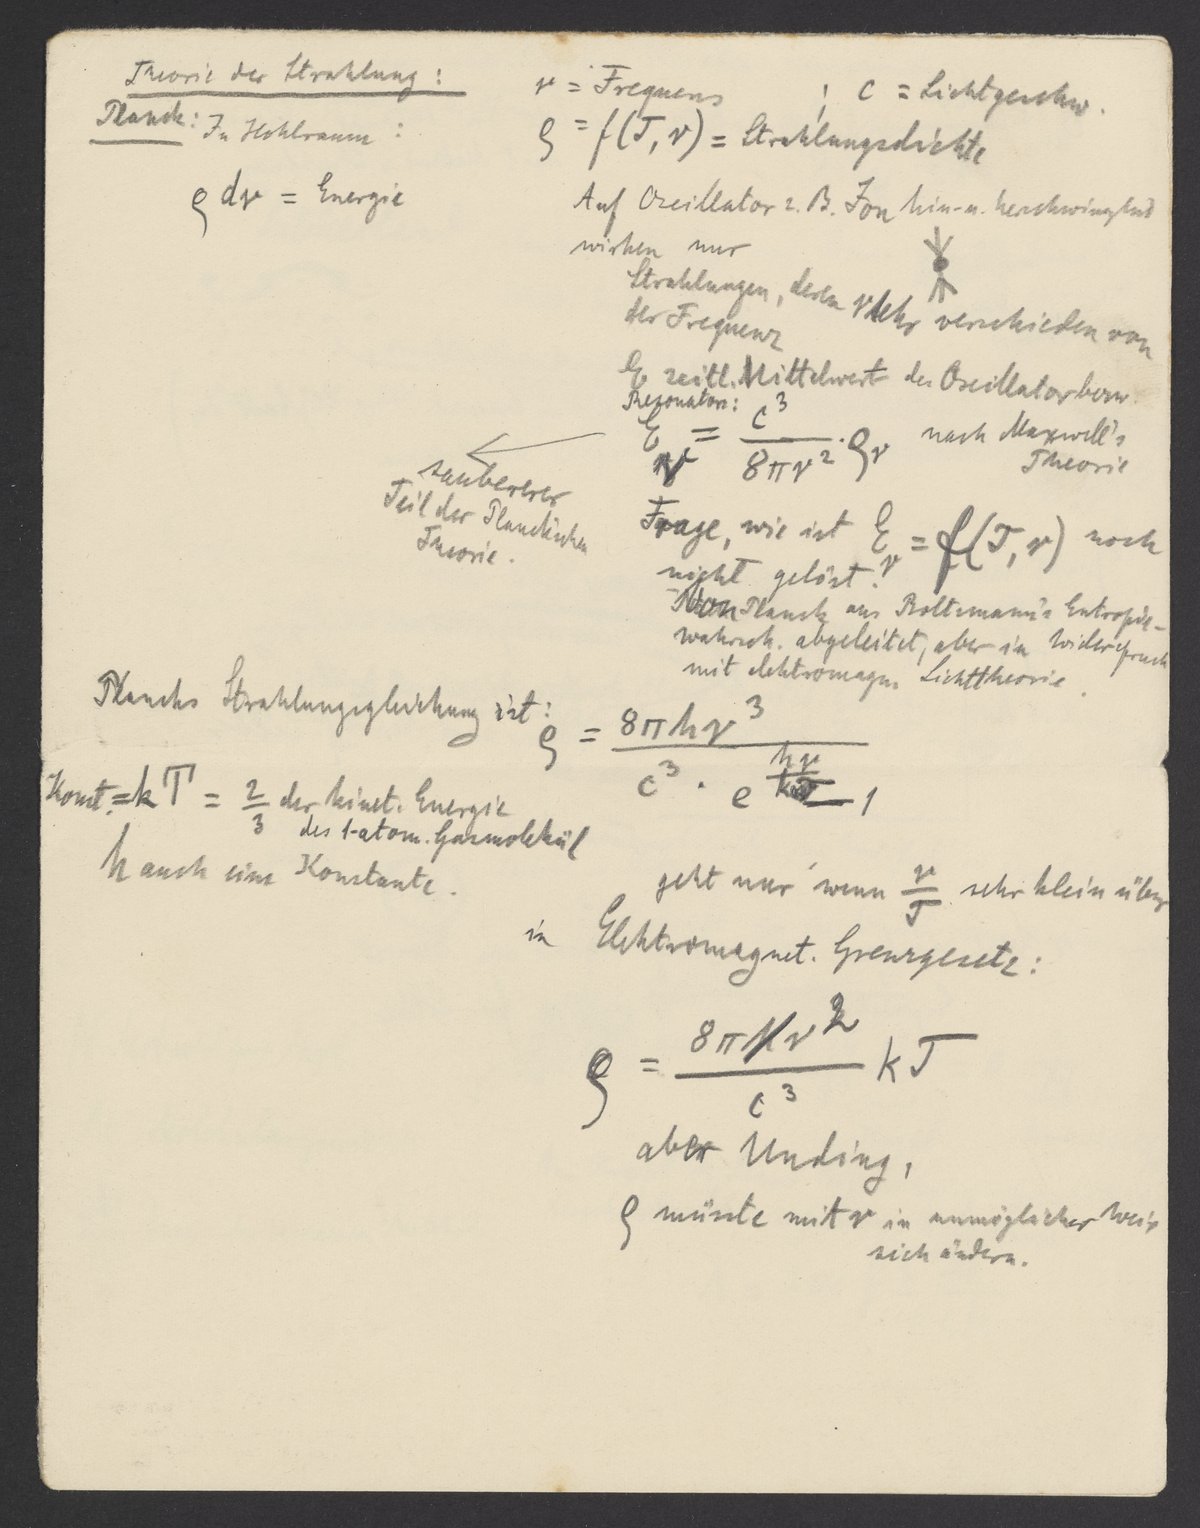 Theorie der Strahlung:
Planck: In Hohlraum:
ρ dν = Energie
ν = Frequenz ; c = Lichtgeschw.
ρ = f(T, ν) = Strahlungsdichte
Auf Oscillator z. B. Ion hin- u. herschwingend
wirken nur
Strahlungen, deren ν sehr verschieden von
der Frequenz
E zeitl. Mittelwert des Oscillators
Resonators:
E_ν = c³ / 8πν² · ρ_ν nach Maxwell's
Theorie
sauberer
Teil der Planckschen
Theorie.
Frage, wie ist E_ν = f(T, ν) noch
nicht gelöst.
Von Planck aus Boltzmann's Entropie-
wahrsch. abgeleitet, aber in Widerspruch
mit elektromagn. Lichttheorie.
Plancks Strahlungsgleichung ist:
ρ = 8πhν³ / c³ · e^(hν/kT) − 1
Konst. = kT = 2/3 der kinet. Energie
des 1-atom. Gasmolekül
h auch eine Konstante.
geht nur wenn ν/T sehr klein über
in Elektromagnet. Grenzgesetz:
ρ = 8πν² / c³ kT
aber Unding,
ρ müsste mit ν in unmöglicher Weis
sich ändern.